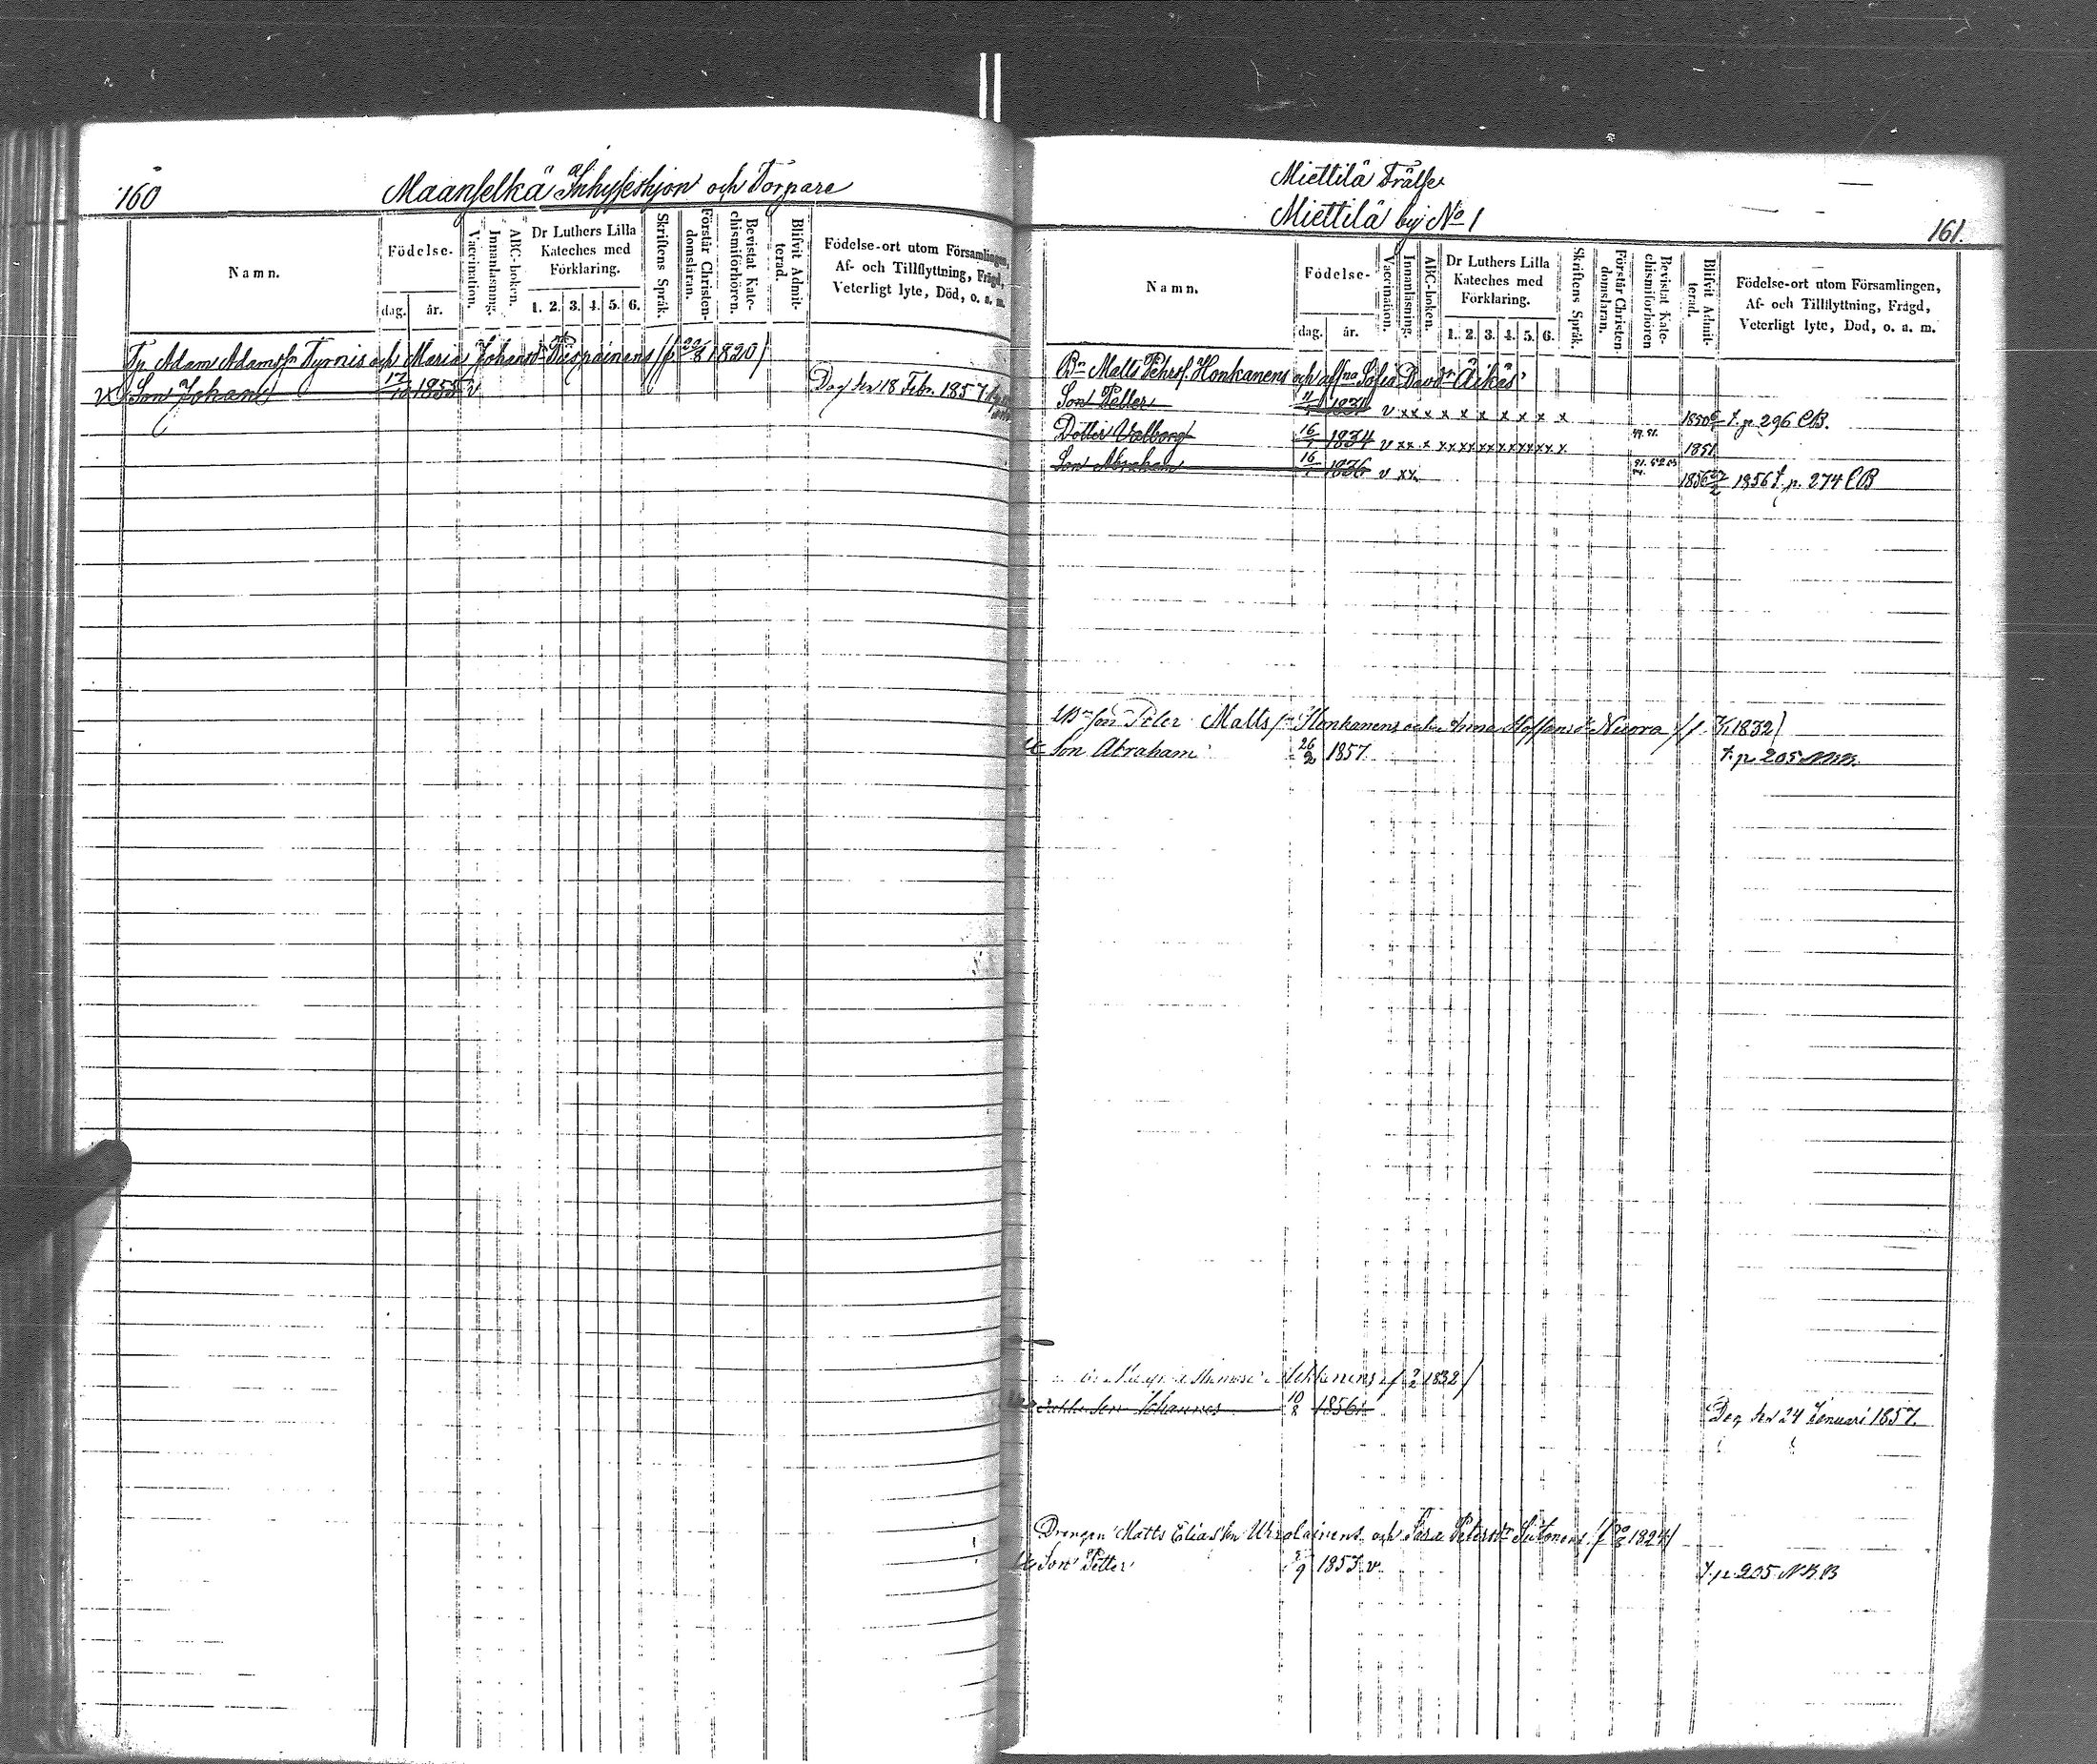 160
Maanselkä Inhyseshjon och Torpare
Namn.
Födelse-
dag. år.
Vaccination.
Innanläsning.
ABC-boken.
Dr Luthers Lilla
Kateches med
Förklaring.
1. 2. 3. 4. 5. 6.
Skriftens Språk.
Förstår Christen-
domsläran.
Bevistat Kate-
chismiförhören.
Blifvit Admit-
terad.
Födelse-ort utom Församlingen,
Af- och Tillflyttning, Frägd,
Veterligt lyte, Död, o. a. m.
Tp Adam Adamsson Tyrnis och Maria Johansdr 1820)
Son Johan 17 1855 v Död den 18 Febr. 1857
Miettilä Frälse
Miettilä by No 1
161.
Namn.
Födelse-
dag. år.
Vaccination.
Innanläsning.
ABC-boken.
Dr Luthers Lilla
Kateches med
Förklaring.
1. 2. 3. 4. 5. 6.
Skriftens Språk.
Förstår Christen-
domsläran.
Bevistat Kate-
chismiförhören
Blifvit Admit-
terad.
Födelse-ort utom Församlingen,
Af- och Tillflyttning, Frägd,
Veterligt lyte, Död, o. a. m.
Bn Matts Pehrs. Honkanens och Sofia Davdr Äikäs
Son Petter 1831 v x x x x x x x x x x 1850 f. p. 296 CB.
Dotter Valborg 16 1834 v x x x x x x x x x x x x x x 1851
Son Abraham 16 1836 v x x 1856 1856 f. p. 274 CB
Bn son Peter Matts Honkanens och Anna Staffansdr Nuora 1832)
Son Abraham 26/2 1857 f. p. 205
1832)
Son Johannes 10 1856 Död den 24 Januari 1857.
Drengen Matts Eliasson Urolainens och Sara Petersdr Sutonens 1824)
Son Petter 9 1853 v f. p. 205 NKB